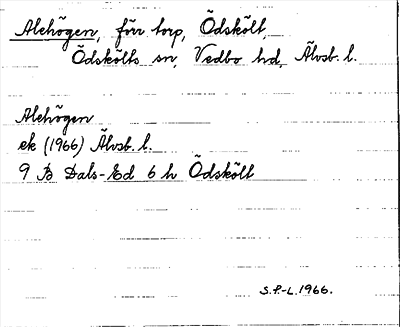 Alehögen, förr torp, Ödskölt,
Ödskölts sn, Vedbo hd, Älvsb. l.
Alehögen
ek (1966) Älvsb. l.
9 B Dals-Ed 6 h Ödskölt
S.F.-L. 1966.